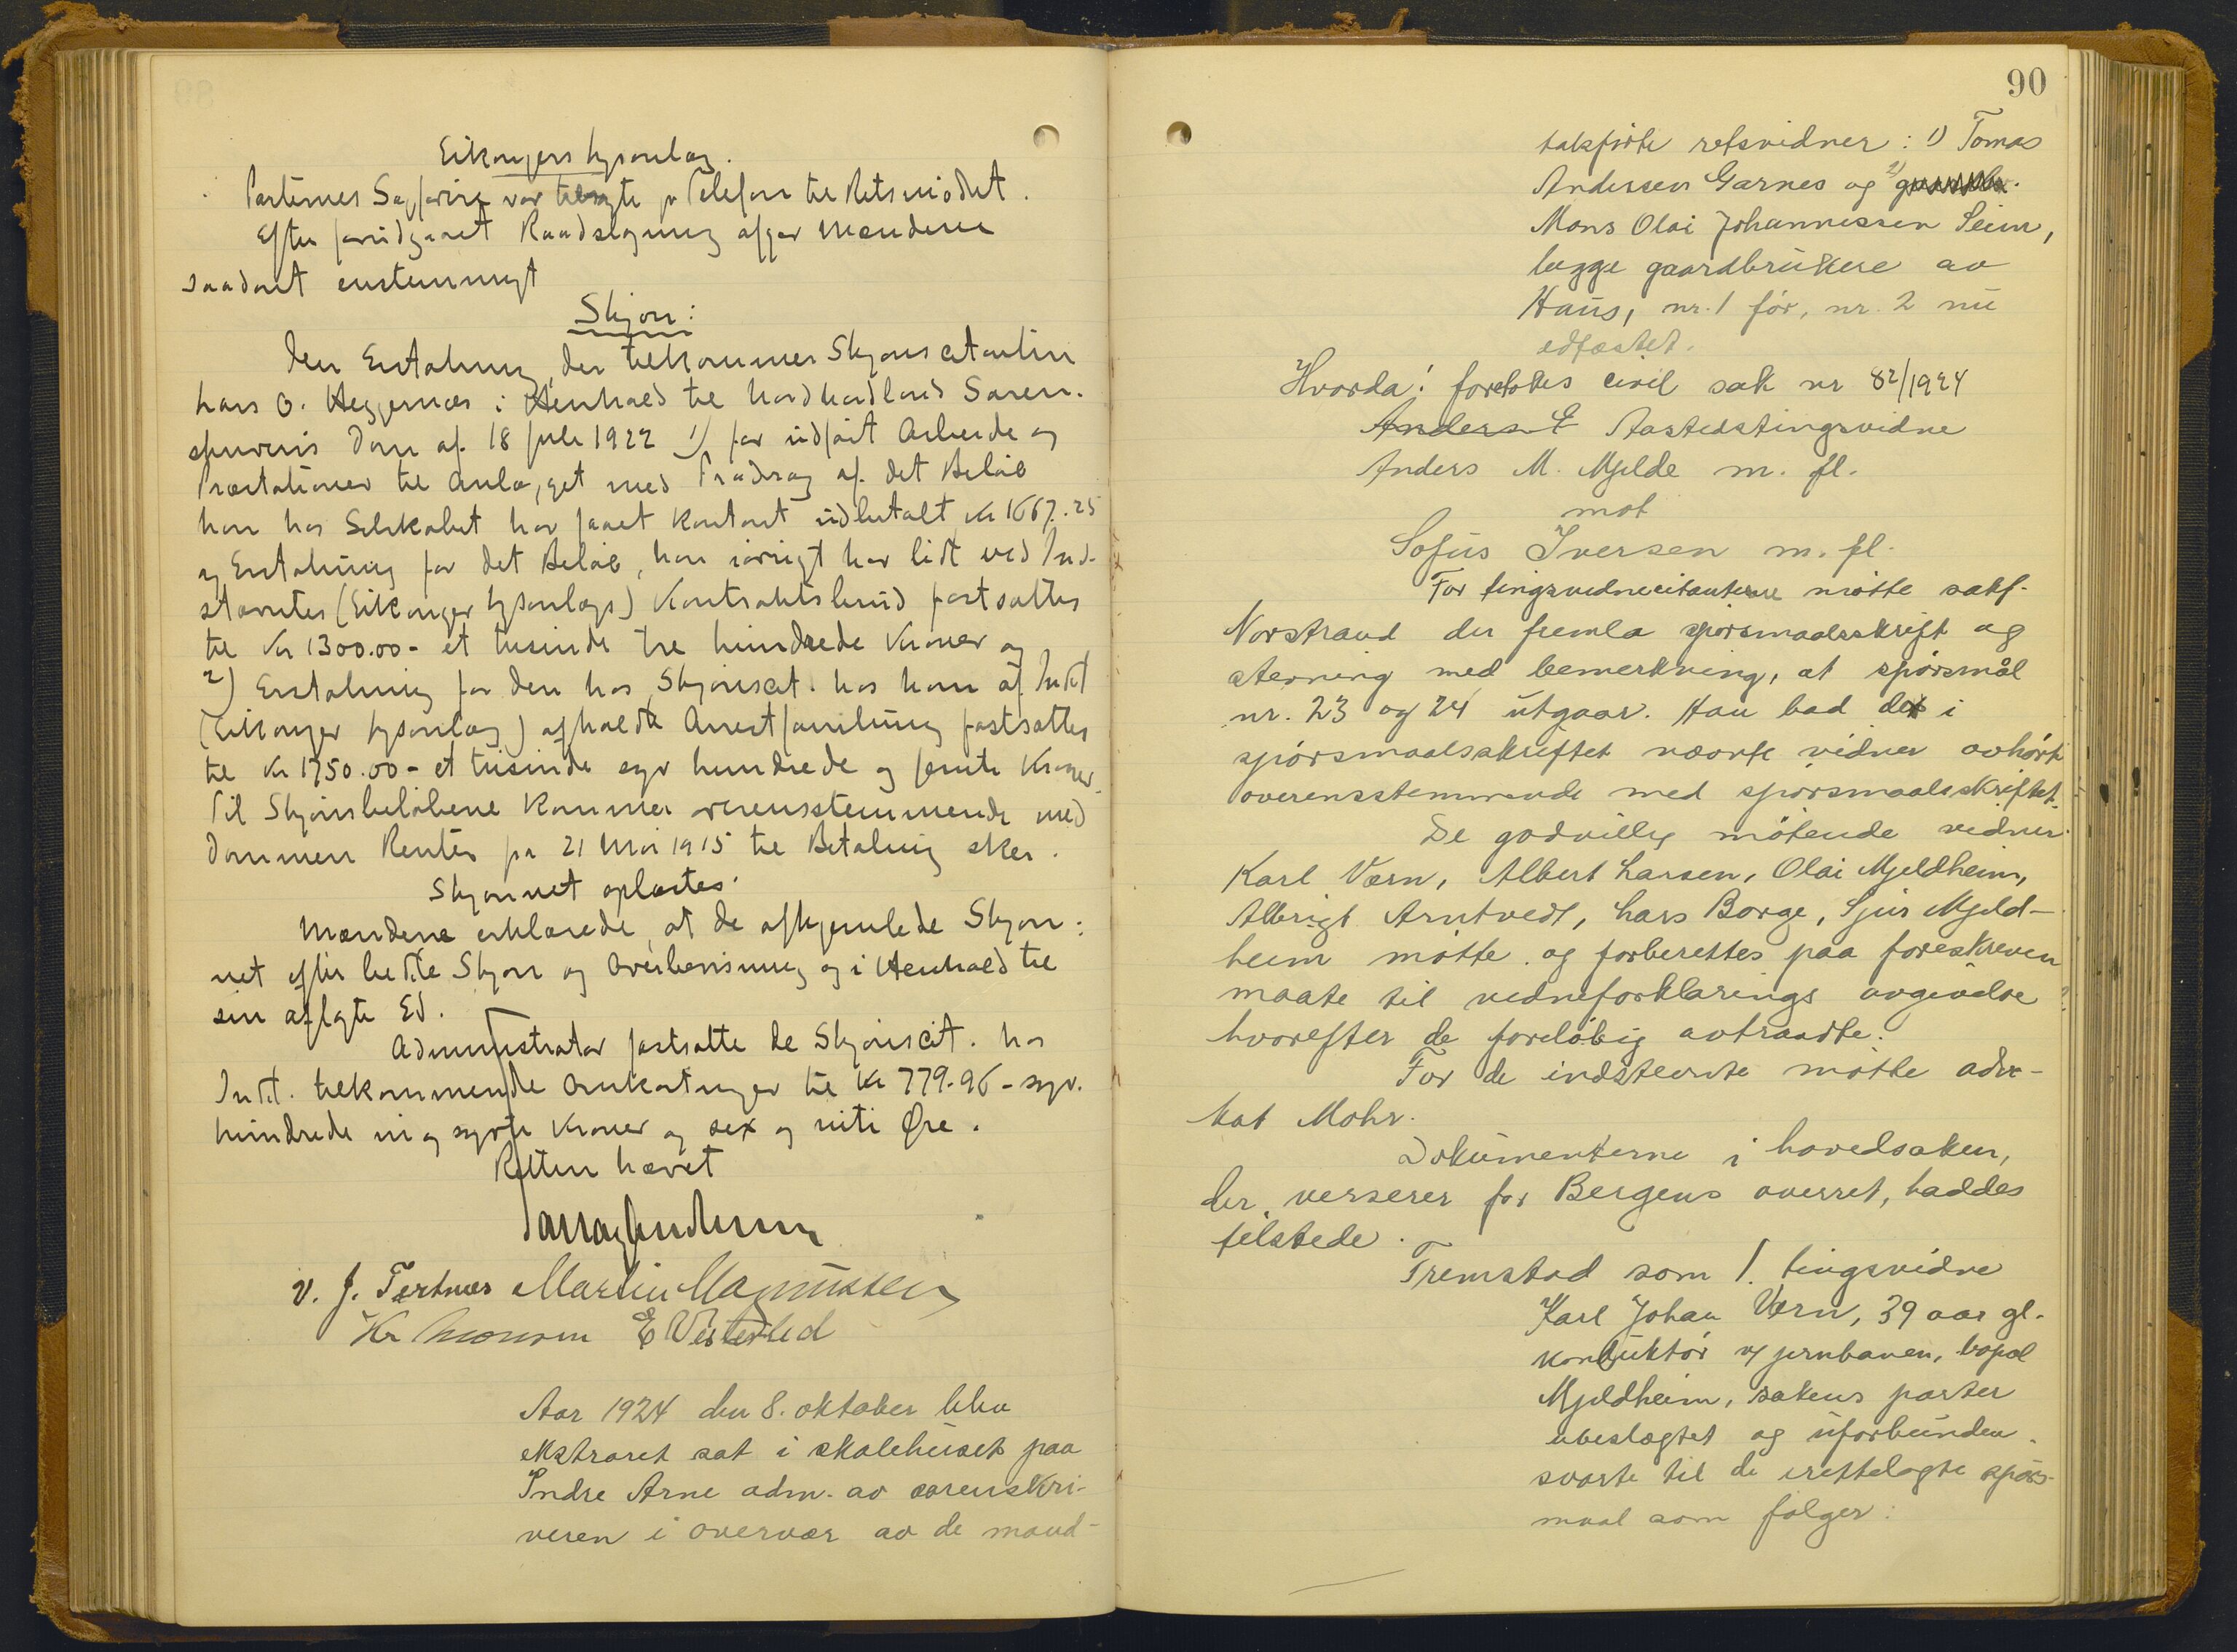 Eikanger Lysanlæg.
Parternes Sagførere var tilsagte pr Telefon til Retsmødet.
Efter forudgaaet Raadslagning afgav Mændene
saadant enstemmigt
Skjøn:
Den Erstatning, der tilkommer Skjønscitanten
Lars O. Heggernæs i Henhold til Nordhordland Soren-
skriveris Dom af 18 Juli 1922 1) for udført Arbeide og
Præstationer til Anlægget med Fradrag af det Beløb
han hos Selskabet har faaet kontant udbetalt, Kr 1667.25
og Erstatning for det Beløb, han iøvrigt har lidt ved Ind-
stævntes (Eikanger Lysanlægs) Kontraktsbrud fastsattes
til Kr 1300.00 - et tusinde tre hundrede Kroner og
2) Erstatning for den hos Skjønscit. hos ham af Indst
(Eikanger Lysanlæg) afholdte Arrestforretning fastsattes
til Kr 1750.00 - et tusinde syv hundrede og femti Kroner.
Til Skjønsbeløbene kommer overensstemmende med
Dommen Renter fra 21 Mai 1915 til Betaling sker.
Skjønnet oplæstes.
Mændene erklærede, at de afhjemlede Skjøn-
net efter bedste Skjøn og Overbevisning og i Henhold til
sin aflagte Ed.
Administrator fastsatte de Skjønscit. hos
Indst. tilkommende Omkostninger til Kr 779.96 - syv
hundrede ni og sytti Kroner og sex og niti Øre.
Retten hævet
V. J. Tertnæs Martin Magnussen
E Vesterlid
Aar 1924 den 8. oktober blev
ekstraret sat i skolehuset paa
Indre Arne adm. av sorenskri-
veren i overvær av de mand-
90
talsførte retsvidner: 1) Tomas
Andersen Garnes og 2)
Mons Olai Johannessen Seim,
begge gaardbrukere av
Haus, nr. 1 før, nr. 2 nu
edfæstet.
Hvorda: foretokes civil sak nr 82/1924
Aastedstingsvidne
Anders M. Mjelde m. fl.
mot
Sofus Iversen m. fl.
For tingsvidnecitanterne møtte sakf.
Norstrand der fremla spørsmaalsskrift og
stevning med bemerkning, at spørsmål
nr. 23 og 24 utgaar. Han bad de i
spørsmaalsskriftet nævnte vidner avhørt
overensstemmende med spørsmaalsskriftet.
De godvillig møtende vidner
Karl Værn, Albert Larsen, Olai Mjeldheim,
Albrigt Arntvedt, Lars Borge, Sjur Mjeld-
heim møtte og forberettes paa foreskreven
maate til vidneforklarings avgivelse
hvorefter de foreløbig avtraadte.
For de indstevnte møtte advo-
kat Mohr.
Dokumenterne i hovedsaken,
der verserer for Bergens overret, haddes
tilstede.
Fremstod som 1. tingsvidne
Karl Johan Værn, 39 aar gl.
konduktør v/ jernbanen, bopæl
Mjeldheim, sakens parter
ubeslægtet og uforbunden
svarte til de irettelagte spørs-
maal som følger: